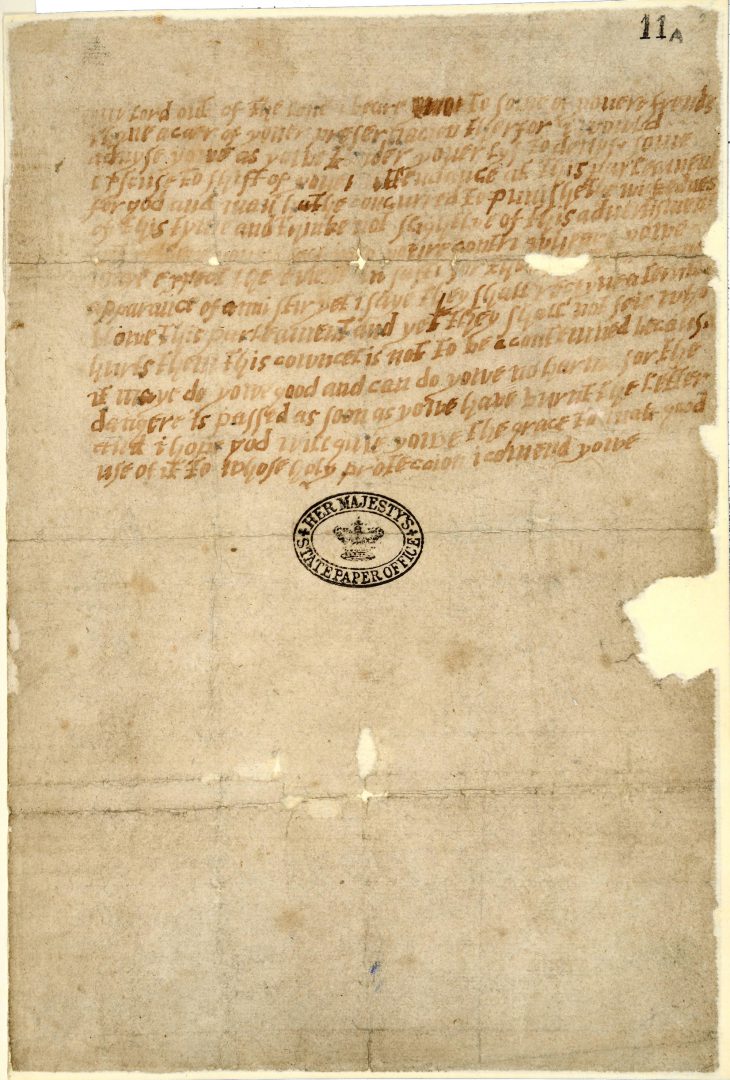 11A
my lord out of the love i beare to some of youere frends
i have a caer of youer preseruacion therfor i would
aduyse yowe as yowe tender youer lyf to deuyse some
excuse to shift of youer attendance at this parleament
for god and man hathe concurred to punishe the wickednes
of this tyme and thinke not slightlye of this aduertisment
youre contri wheare yowe
maye expect the event in safti for
apparance of anni stir yet i saye they shall receyve a terrible
blowe this parleament and yet they shall not seie who
hurts them this cowncel is not to be contemned because
it maye do yowe good and can do yowe no harme for the
dangere is passed as soon as yowe have burnt the letter
and i hope god will give yowe the grace to mak good
use of it to whose holy proteccion i comend yowe
HER MAJESTY'S
STATE PAPER OFFICE